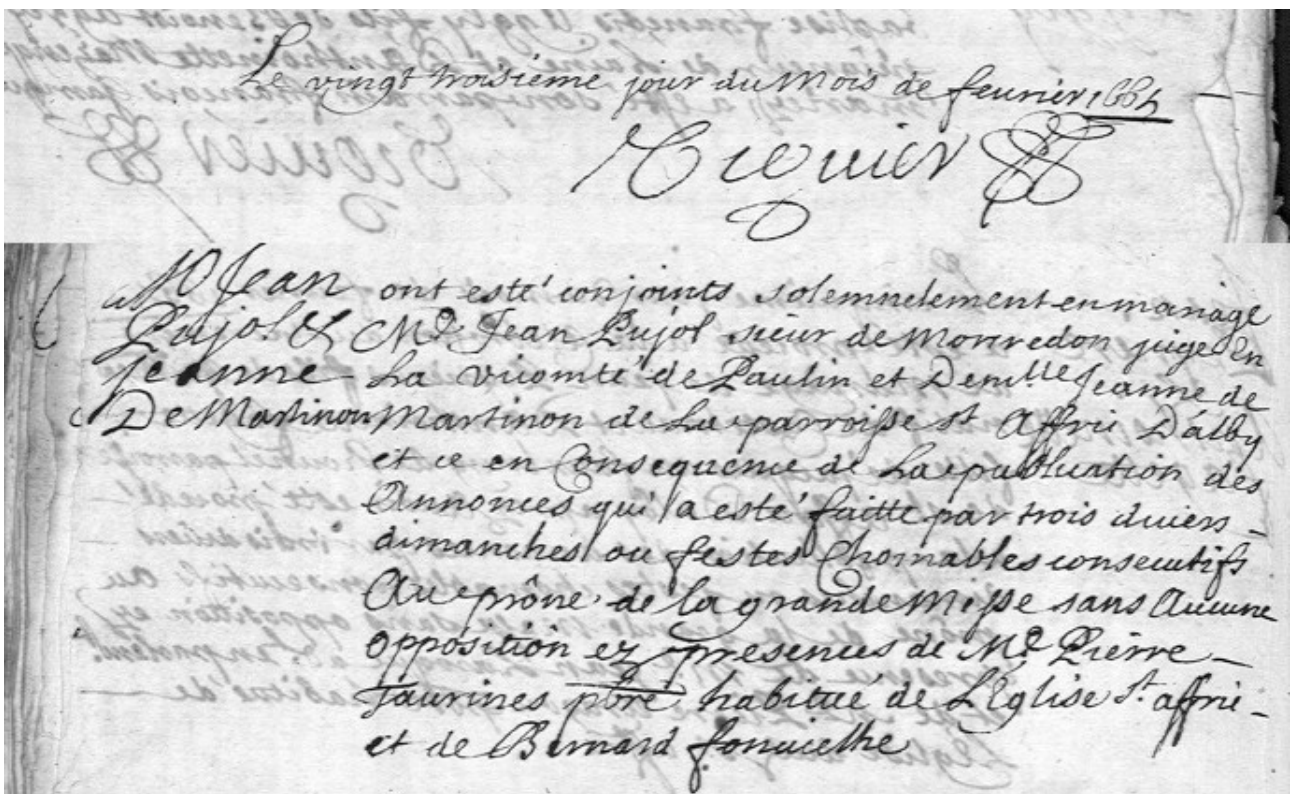 Le vingt troisiéme jour du Mois de feurier 1664
Mo Jean
Pujol &
Jeanne
De Martinon
ont esté conjoints solemnelement en mariage
Me Jean Pujol sieur de Monredon juge En
La vicomté de Paulin et Demlle Jeanne de
Martinon de La parroisse st Affric D'alby
et ce en Consequence de La publication des
Annonces qui a esté faitte par trois divers
dimanches ou festes Chomables consecutifs
Au prône de la grande Messe sans Aucune
opposition ez presences de Me Pierre
Taurines pbre habitué de L'Eglise st affric
et de Bernard fonvielhe